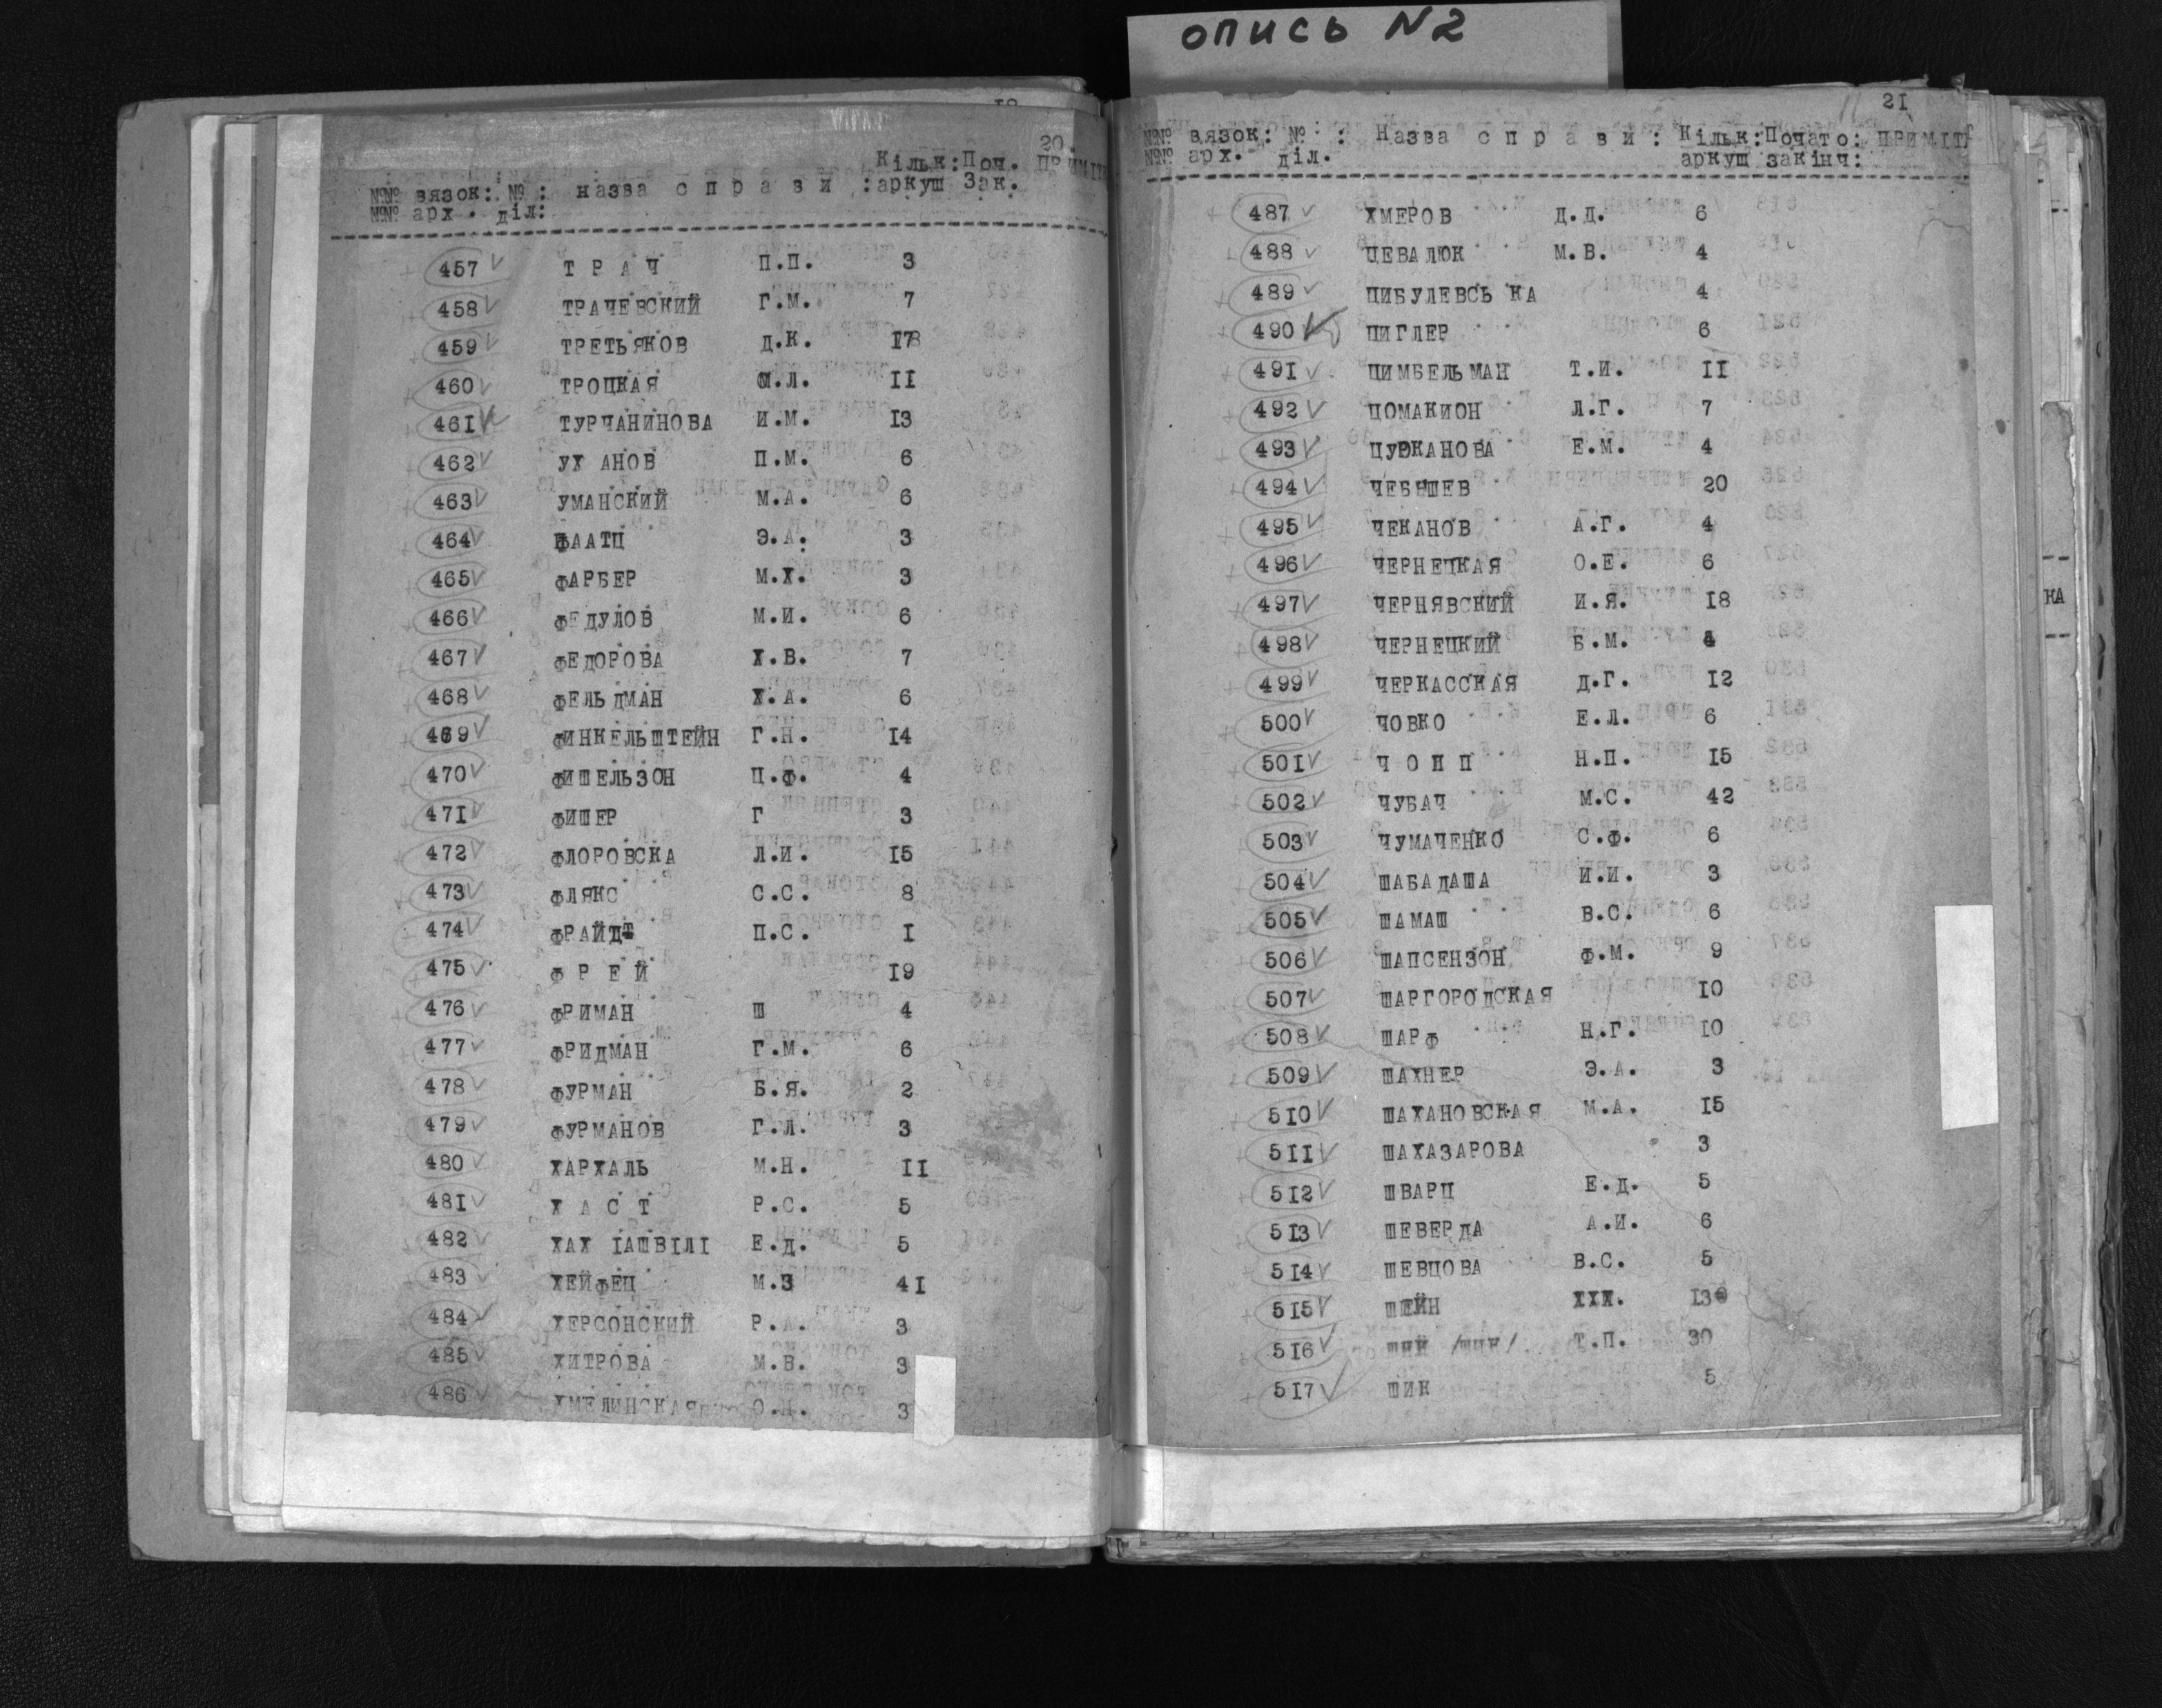 опись N2
20.
№№ вязок: № : назва справи :Кільк:Поч. ПРИМІТ
№№ арх. діл: аркуш Зак.
457 ТРАЧ П.П. 3
458 ТРАЧЕВСКИЙ Г.М. 7
459 ТРЕТЬЯКОВ Д.К. 17
460 ТРОЦКАЯ М.Л. II
461 ТУРЧАНИНОВА И.М. I3
462 УХАНОВ П.М. 6
463 УМАНСКИЙ М.А. 6
464 ФААТЦ Э.А. 3
465 ФАРБЕР М.Х. 3
466 ФЕДУЛОВ М.И. 6
467 ФЕДОРОВА Х.В. 7
468 ФЕЛЬДМАН Х.А. 6
469 ФИНКЕЛЬШТЕЙН Г.Н. I4
470 ФИШЕЛЬЗОН Ц.Ф. 4
47I ФИШЕР Г 3
472 ФЛОРОВСКА Л.И. I5
473 ФЛЯКС С.С. 8
474 ФРАЙДТ П.С. I
475 ФРЕЙ I9
476 ФРИМАН Ш 4
477 ФРИДМАН Г.М. 6
478 ФУРМАН Б.Я. 2
479 ФУРМАНОВ Г.Л. 3
480 ХАРХАЛЬ М.Н. II
48I ХАСТ Р.С. 5
482 ХАХ ІАШВІЛІ Е.Д. 5
483 ХЕЙФЕЦ М.З 4I
484 ХЕРСОНСКИЙ Р.А. 3
485 ХИТРОВА М.В. 3
486 ХМЕЛИНСКАЯ О.Н. 3
2I
№№ вязок: № : Назва справи : Кільк:Почато: ПРИМІТ
№№ арх. діл. аркуш закінч:
487 ХМЕРОВ Д.Д. 6
488 ЦЕВАЛЮК М.В. 4
489 ЦИБУЛЕВСЬКА 4
490 ЦИГЛЕР 6
49I ЦИМБЕЛЬМАН Т.И. II
492 ЦОМАКИОН Л.Г. 7
493 ЦУРКАНОВА Е.М. 4
494 ЧЕБЫШЕВ 20
495 ЧЕКАНОВ А.Г. 4
496 ЧЕРНЕЦКАЯ О.Е. 6
497 ЧЕРНЯВСКИЙ И.Я. I8
498 ЧЕРНЕЦКИЙ Б.М. 4
499 ЧЕРКАССКАЯ Д.Г. I2
500 ЧОВКО Е.Л. 6
50I ЧОПП Н.П. I5
502 ЧУБАЧ М.С. 42
503 ЧУМАЧЕНКО С.Ф. 6
504 ШАБАДАША И.И. 3
505 ШАМАШ В.С. 6
506 ШАПСЕНЗОН Ф.М. 9
507 ШАРГОРОДСКАЯ I0
508 ШАРФ Н.Г. I0
509 ШАХНЕР Э.А. 3
5I0 ШАХАНОВСКАЯ М.А. I5
5II ШАХАЗАРОВА 3
5I2 ШВАРЦ Е.Д. 5
5I3 ШЕВЕРДА А.И. 6
5I4 ШЕВЦОВА В.С. 5
5I5 ШЕЙН ХХХ. I3
5I6 Т.П. 30
5I7 ШИК 5
КА